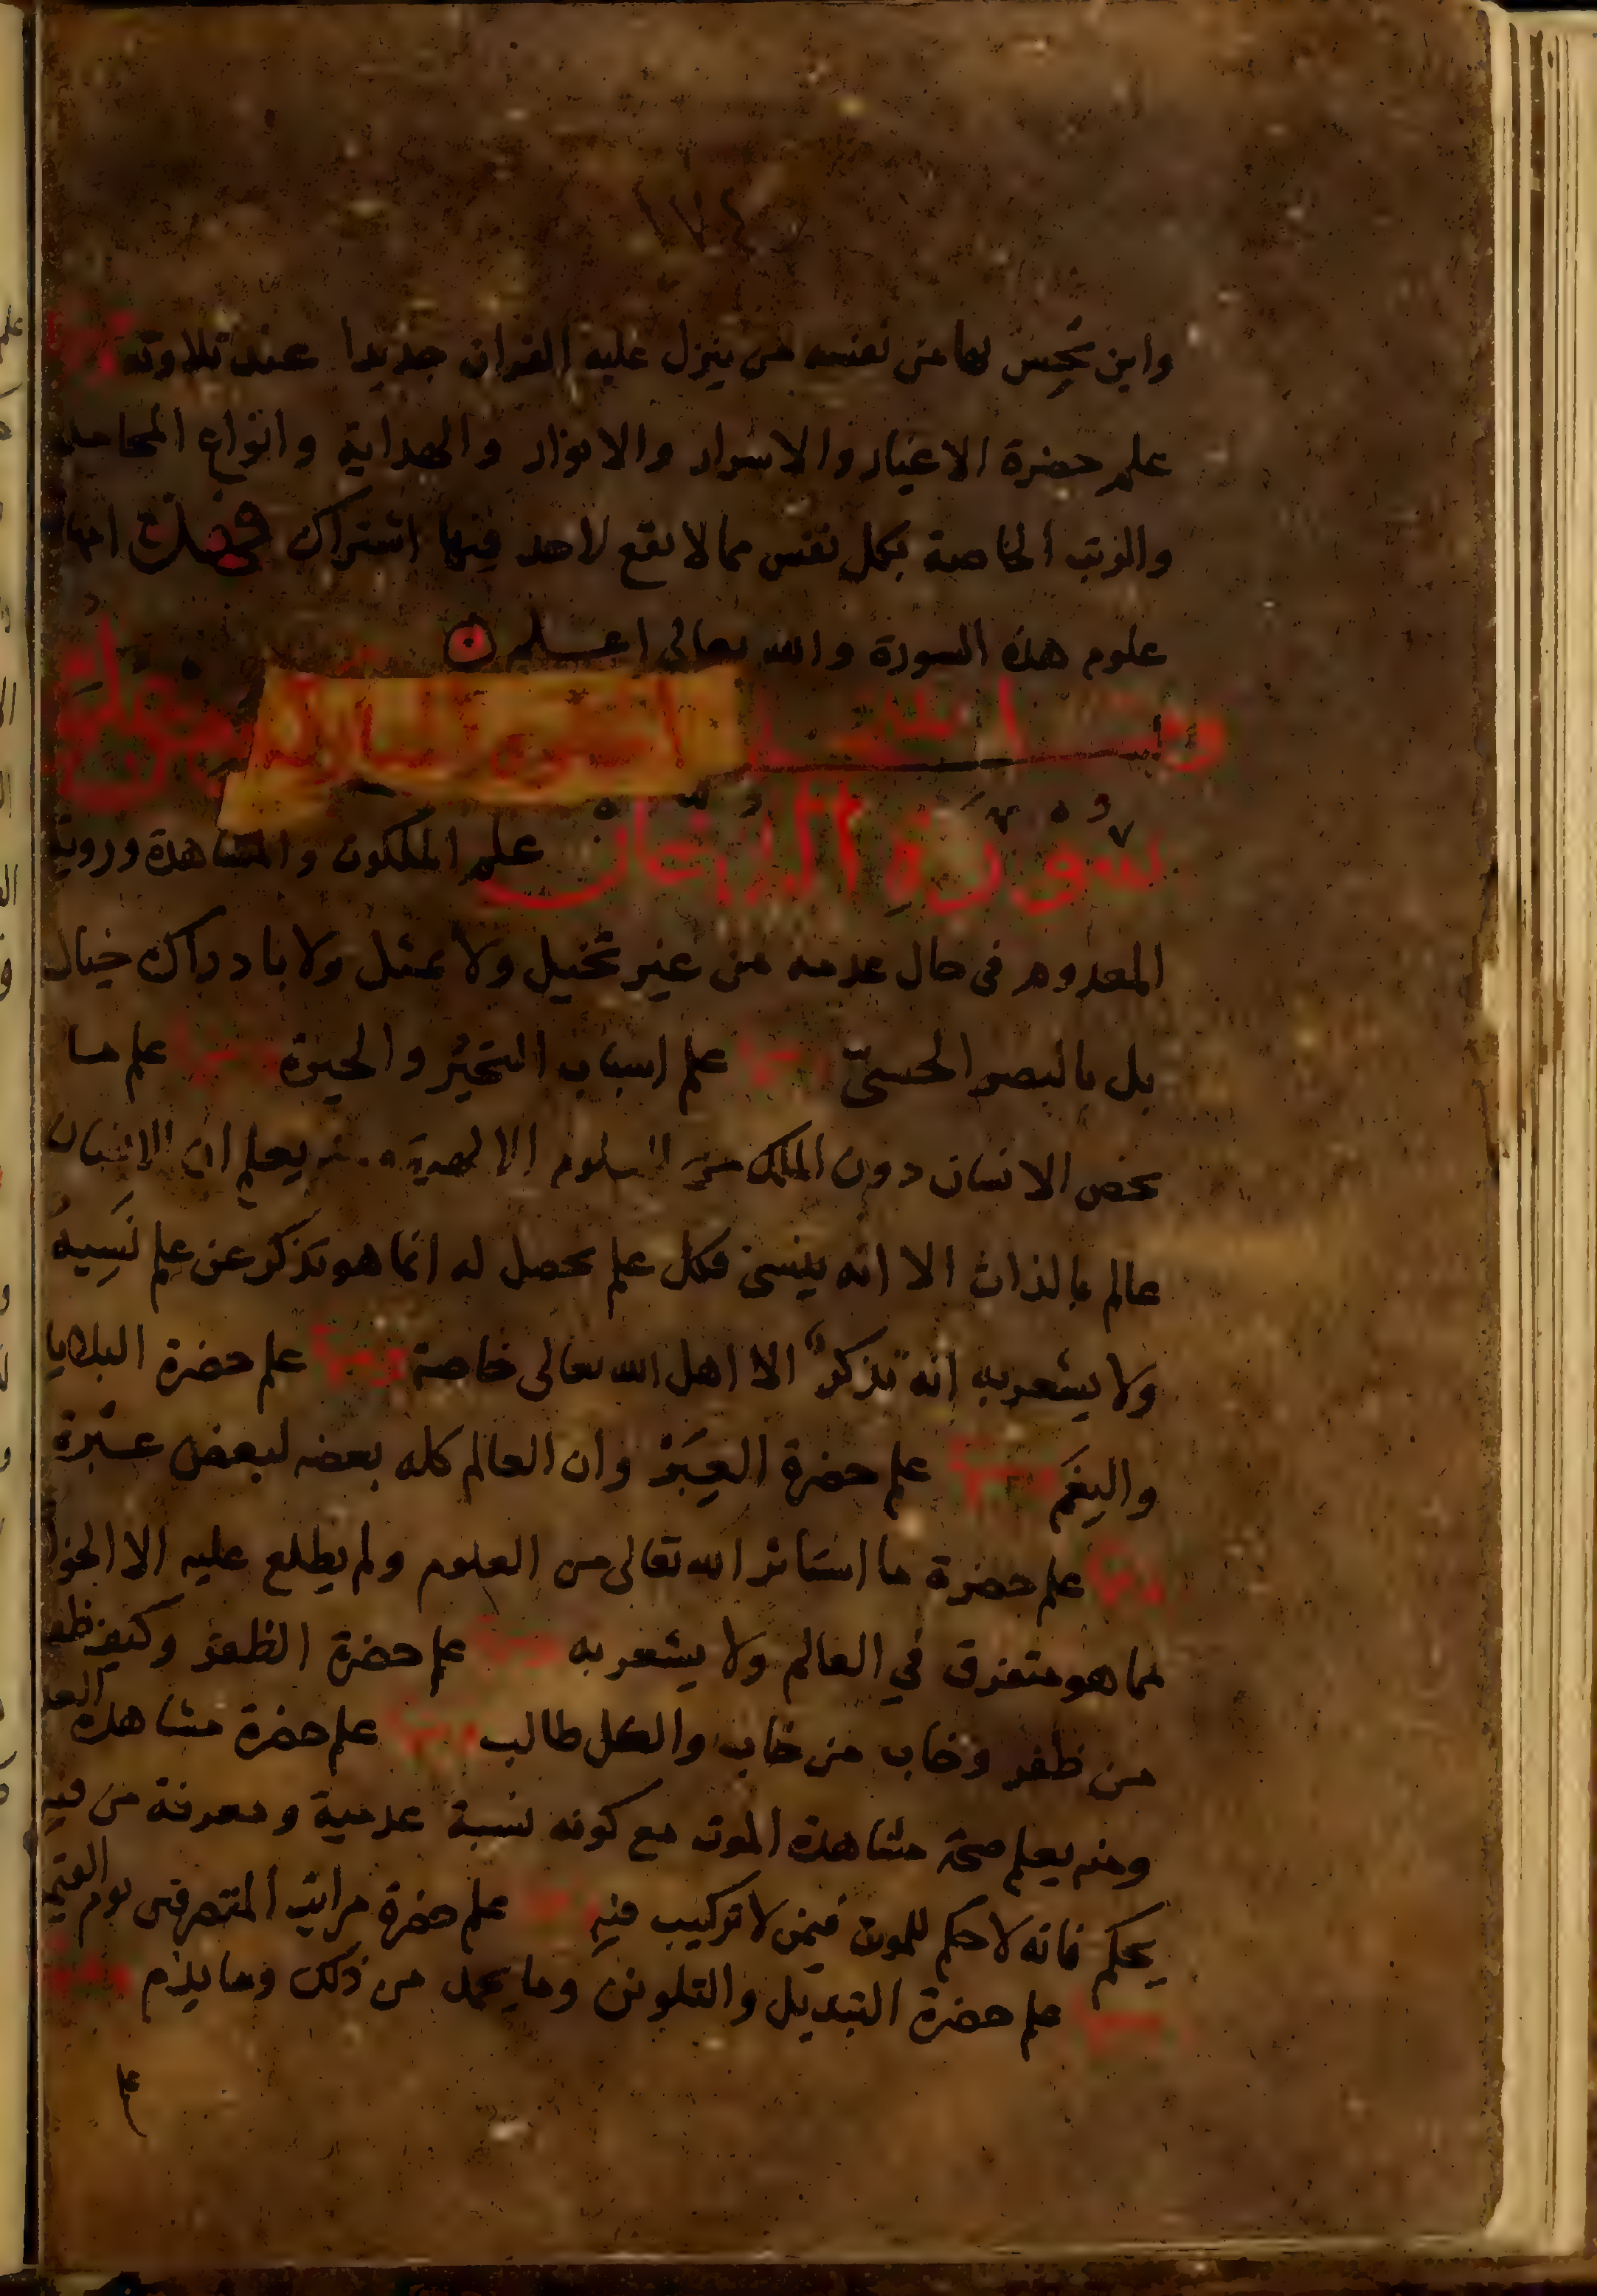 ١٧٤
واين يحس بها من نفسه من ينزل عليه القران جديدا عند تلاوته ومنها
علم حضرة الاغيار والاسرار والانوار والهداية وانواع المحامد
والرتب الخاصة بكل نفس مما لا يقع لاحد فيها اشتراك فهذه امهات
علوم هذه السورة والله تعالى اعلم
سورة الدخان علم الملكوت والمشاهدة وروية
المعدوم فى حال عدمه من غير تخيل ولا تمثل ولا بادراك خيال
بل بالبصر الحسىّ ومنها علم اسباب التحيّر والحيرة ومنها علم ما
يخص الانسان دون الملك من العلوم الالهية ومنه يعلم ان الانسان
عالم بالذات الا انه ينسى فكل علم يحصل له انما هو تذكر عن علم نَسِيهُ
ولا يشعر به انه تذكر الا اهل الله تعالى خاصة ومنها علم حضرة البلايا
والنِعَم ومنها علم حضرة العِبَرْ وان العالم كله بعضه لبعض عبْرة
ومنها علم حضرة ما استاثر الله تعالى من العلوم ولم يطلع عليه الا الخواص
مما هو متفرق في العالم ولا يشعر به ومنها علم حضرة الظفر وكيف ظفر
من ظفر وخاب من خاب والكل طالب ومنها علم حضرة مشاهدة العدم
ومنه يعلم صحة مشاهدة الموت مع كونه نسبة عدمية ومعرفة من فيه
يحكم فانه لا حكم للموت فيمن لا تركيب فيه ومنها علم حضرة مراتب المتصرفين يوم القيمة
ومنها علم حضرة التبديل والتلوين وما يحمد من ذلك وما يذم ومنها
علم